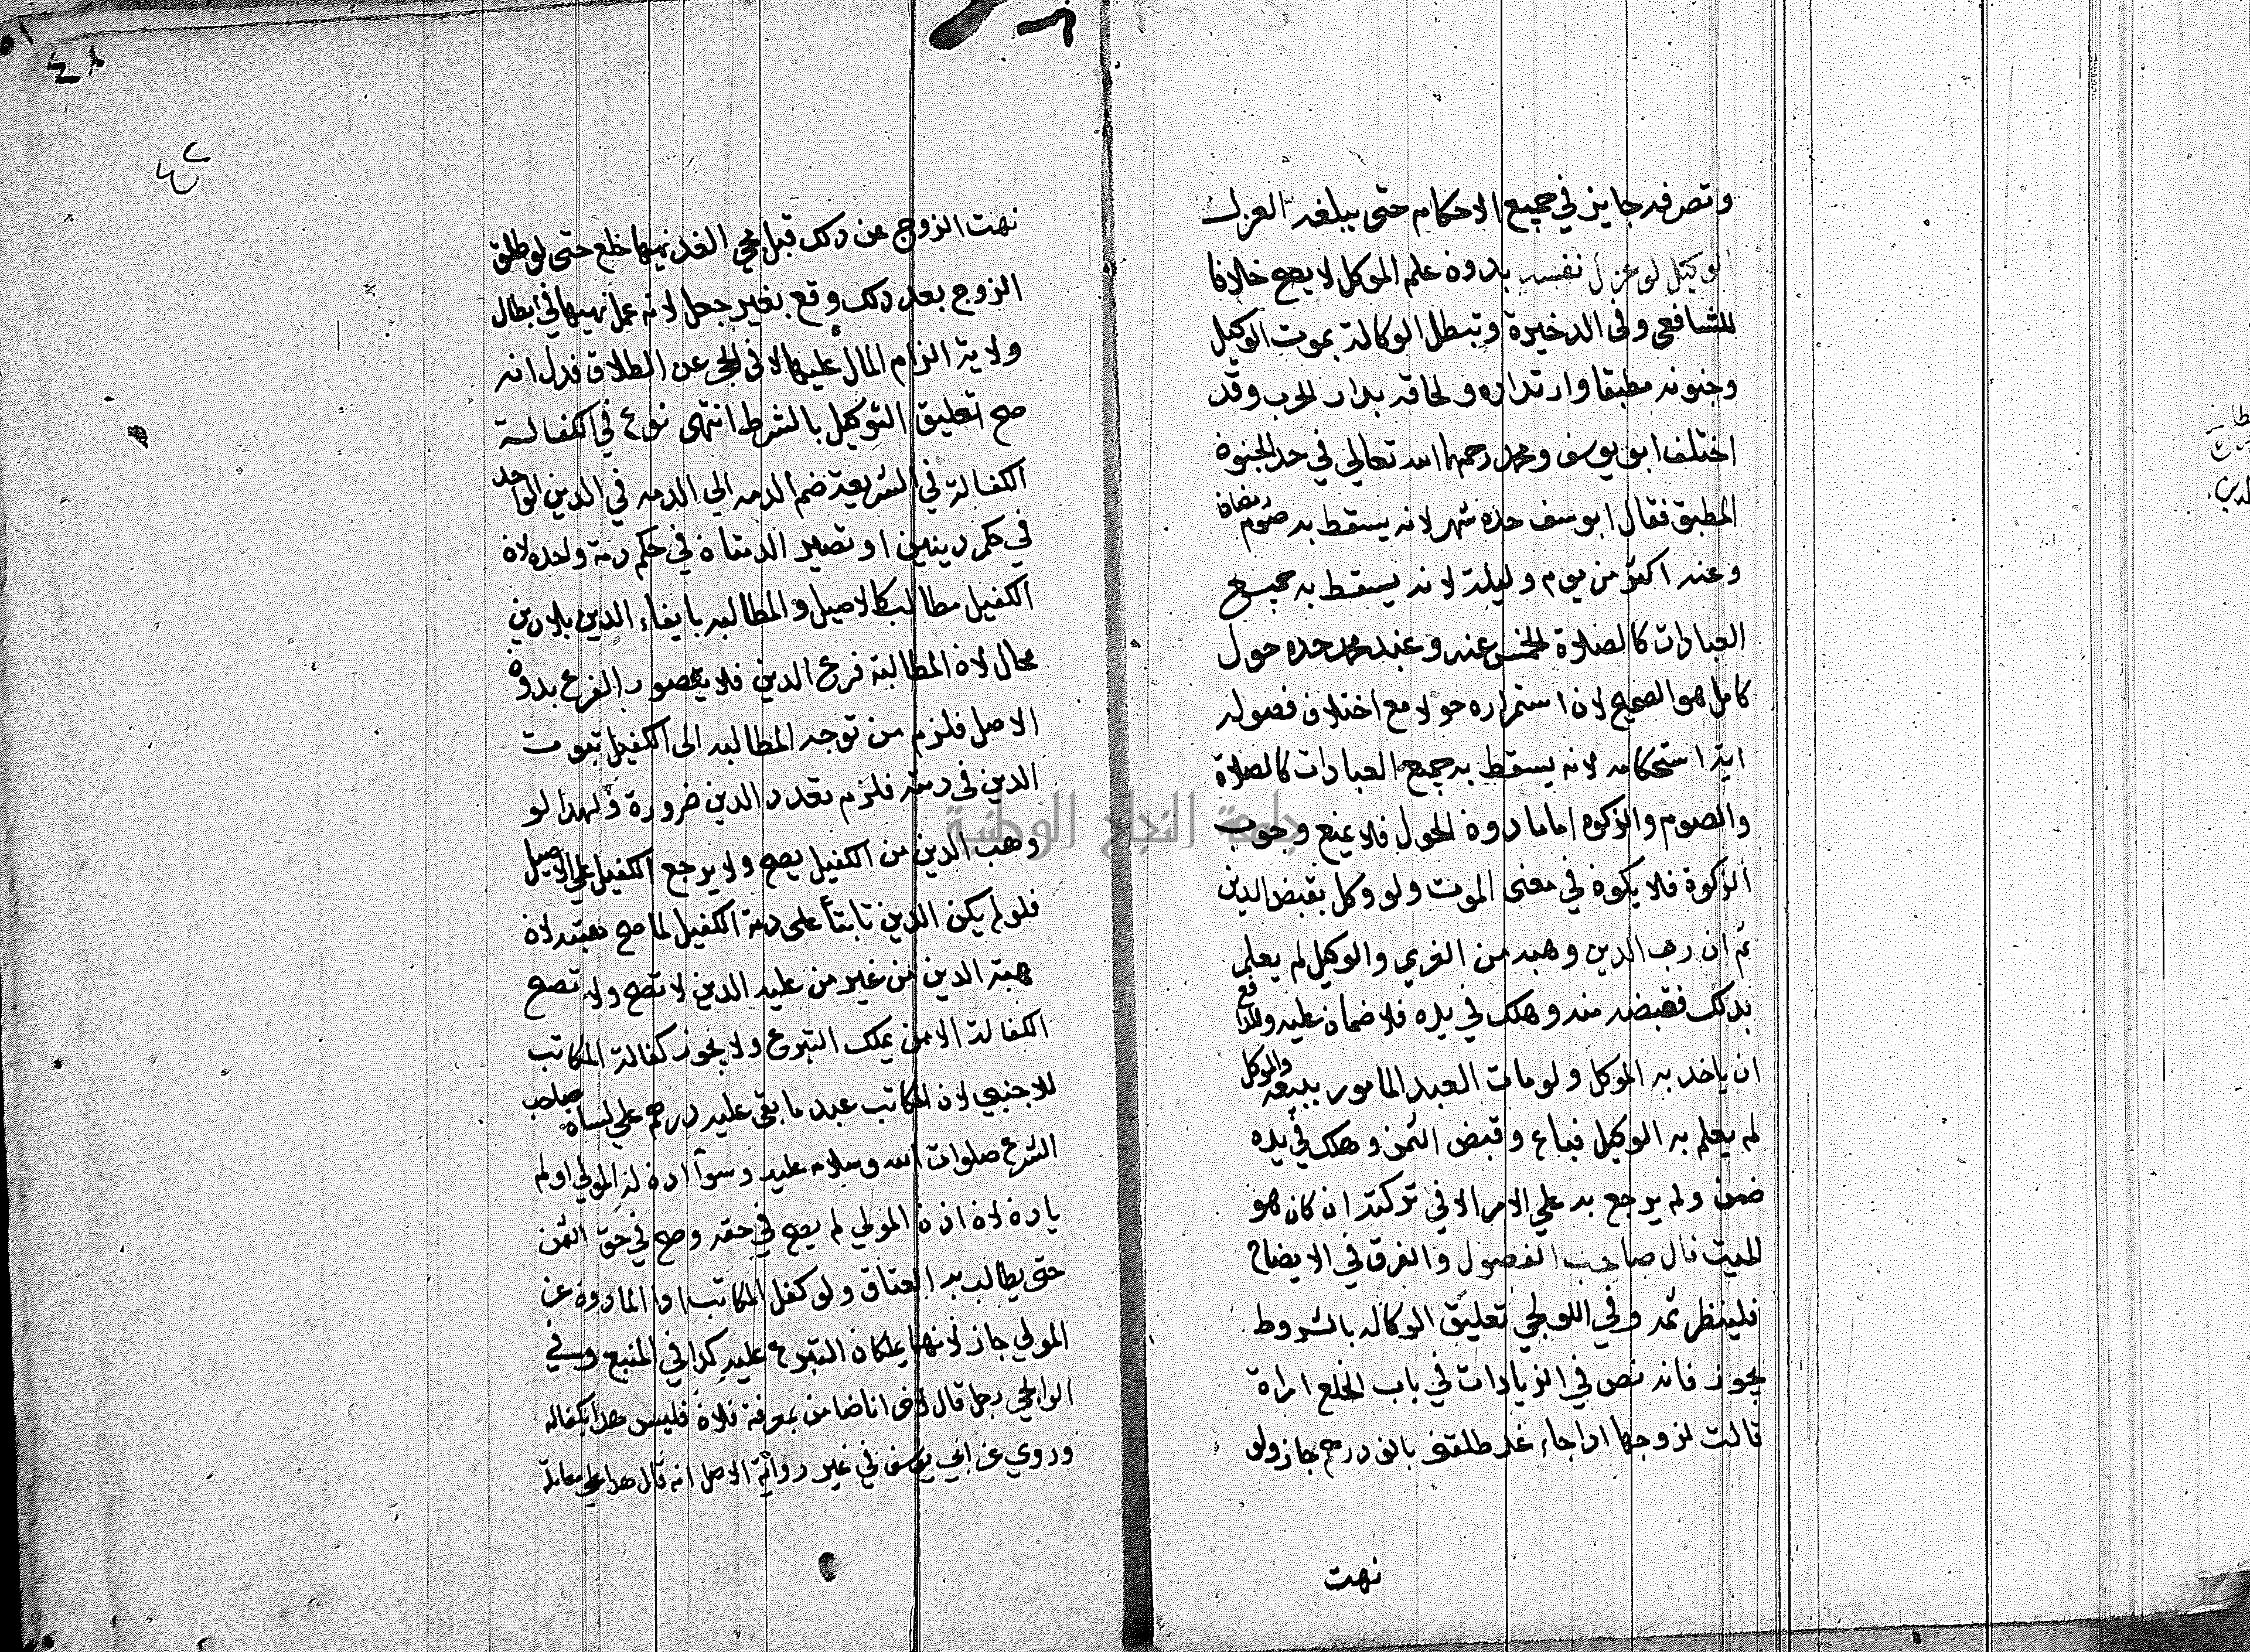 وتصرفه جايز في جميع الاحكام حتى يبلغه العزل
الوكيل لو عزل نفسه بدون علم الموكل لا يصح خلافا
للشافعي وفي الدخيرة وتبطل الوكالة بموت الوكيل
وجنونه مطبقا وارتداده ولحاقه بدار الحرب وقد
اختلف ابو يوسف ومحمد رحمهما الله تعالي في حد الجنون
المطبق فقال ابو سف حده شهر لانه يسقط به صوم رمضان
وعنه اكثر من يوم وليلة لانه يسقط به جميع
العبادات كالصلاة الخمس عنه وعند محمد حده حول
كامل هو الصحيح لان استمراره حولا مع اختلاف فصوله
اية استحكامه لانه يسقط به جميع العبادات كالصلاة
والصوم والزكوه اما ما دون الحول فلا يمنع وجوب
الزكوة فلا يكون في معنى الموت ولو وكل بقبض الدين
ثم ان رب الدين وهبه من الغريم والوكيل لم يعلم
بدلك فقبضه منه وهلك في يده فلا ضمان عليه وللدافع
ان ياخد به الموكل ولو مات العبد المامور ببيعه والوكل
لم يعلم به الوكيل فباع وقبض الثمن وهلك في يده
ضمن ولم يرجع به علي الامر الا في تركته ان كان هو
الميت قال صاحب الفصول والفرق في الايضاح
فلينظر ثمه وفي اللولجي تعليق الوكاله بالشروط
يجوز فانه نص في الزيادات في باب الخلع امراة
قالت لزوجها ادا جاء غد طلقني بالف درهم جاز ولو
نهت
٥١
٤٨
٤٢
نهت الزوج عن دلك قبل مجي الغد نهيها خلع حتى لو طلق
الزوج بعد دلك وقع بغير جعل لانه عمل نهيها في ابطال
ولاية الزام المال عليها لا في الحجر عن الطلاق فدل انه
صح تعليق التوكيل بالشرط انتهى نوع في الكفالة
الكفالة في الشريعة ضم الدمه الي الدمه في الدين الواحد
في حكم دينين او تصير الدمتان في حكم دمة واحده لان
الكفيل مطالب كالاصيل والمطالبه بايفاء الدين بلا دين
محال لان المطالبة فرع الدين فلا يتصور الفرع بدون
الاصل فلزم من توجه المطالبه الى الكفيل تبوت
الدين في دمته فلزم تعدد الدين ضرورة ولهدا لو
وهب الدين من الكفيل يصح ولا يرجع الكفيل على الاصيل
فلو لم يكن الدين تابتاً على دمة الكفيل لما صح هبته لان
هبة الدين من غير من عليه الدين لا تصح ولا تصح
الكفالة الا ممن يملك التبرع ولا يجوز كفالة المكاتب
للاجنبي لان المكاتب عبد ما بقي عليه درهم علي لسان صاحب
الشرع صلوات الله وسلامه عليه وسوآ ادن له المولي او لم
يادن لان ادن المولي لم يصح في حقه وصح في حق القن
حتى يطالب به العتاق ولو كفل المكاتب او المادون عن
المولي جاز لانهما يملكان التبرع عليه كدا في المنبع وفي
الوالجي رجل قال لاخر انا ضامن بمعرفة فلان فليس هدا بكفاله
وروي عن ابي يوسف في غير رواية الاصل انه قال هدا علي معاملة
جامعة النجاح الوطنية